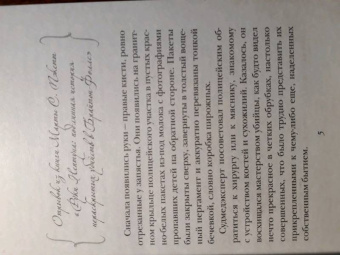 Отрывок из книги Марты С. Поблит
Сначала появились руки – правые кисти, ровно
отрезанные у запястья. Они появились на гранит-
ном крыльце полицейского участка в пустых крас-
но-белых пакетах из-под молока с фотографиями
пропавших детей на обратной стороне. Пакеты
были закрыты сверху, завернуты в толстый воще-
ный пергамент и аккуратно перевязаны тонкой
бечевкой, словно коробка пирожных.
Судмедэксперт посоветовал полицейским об-
ратиться к хирургу или к мяснику, знакомому
с устройством костей и сухожилий. Казалось, он
восхищался мастерством убийцы, как будто видел
нечто прекрасное в четких обрубках, настолько
совершенных, что было трудно представить их
прикрепленными к чему-либо еще, наделенных
собственным бытием.
5